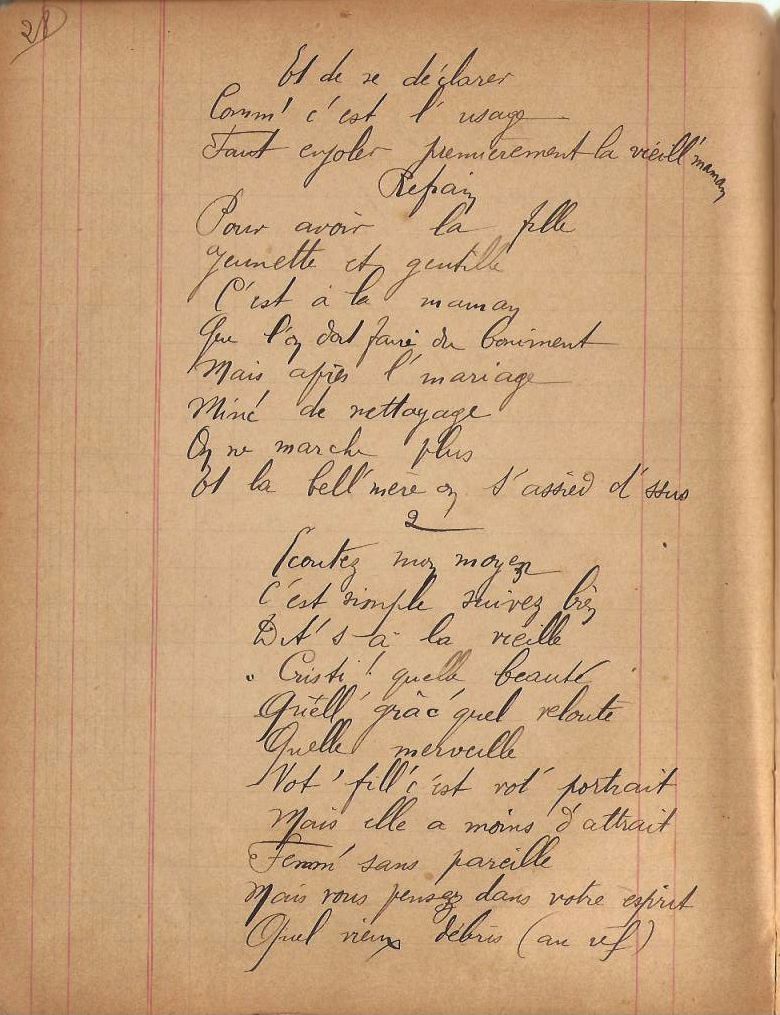 28
Et de se déclarer
Comm' c'est l'usage
Faut enjoler premierement la vieill' maman
Refrain
Pour avoir la fille
Jeunette et gentille
C'est à la maman
Que l'on doit faire du boniment
Mais après l'mariage
Miné de nettoyage
On ne marche plus
Et la bell'mère on s'assied d'ssus
2
Ecoutez mon moyen
C'est simple suivez bien
Dit's à la vieille
" Cristi ! quelle beauté
Quell' grâc' quel velouté
Quelle merveille
Vot' fill' c'est vot' portrait
Mais elle a moins d'attrait
Femm' sans pareille
Mais vous pensez dans votre esprit
Quel vieux débris (au ref)